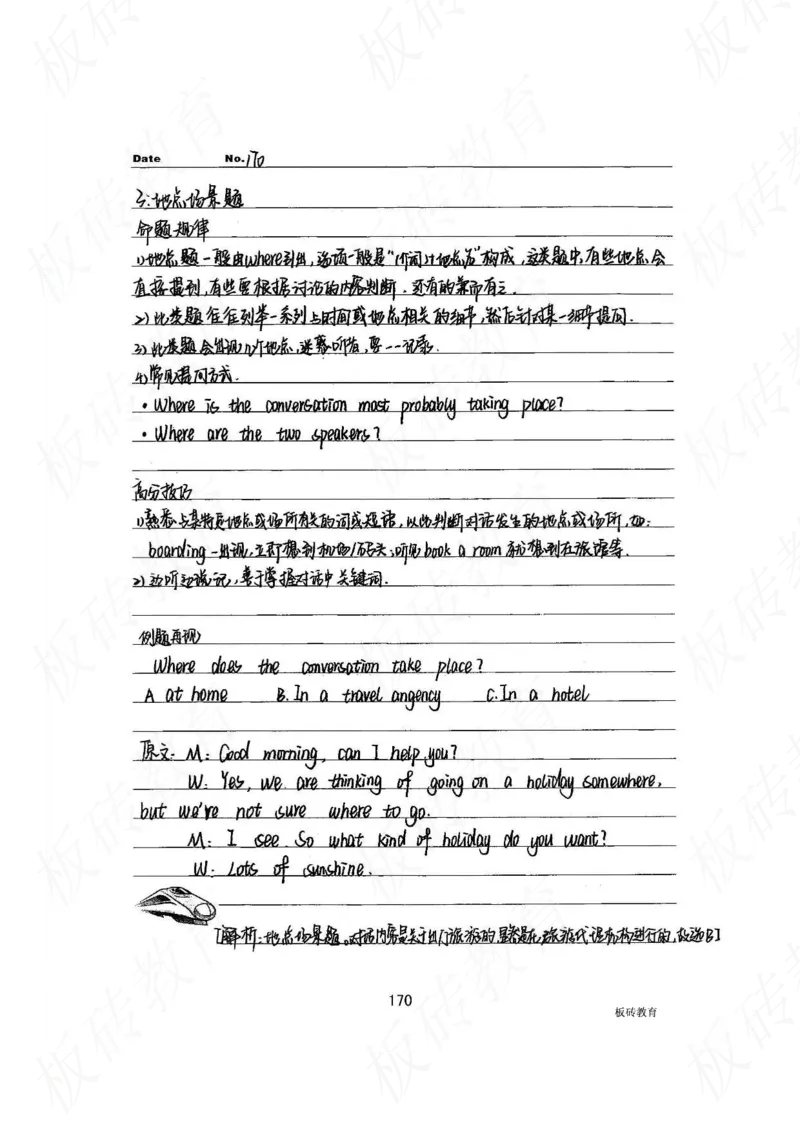 Date No.170
3:地点场景题
命题规律
1)地点题一般由where引出,选项一般是"介词+地点名"构成,这类题中,有些地点会
直接提到,有些要根据讨论的内容判断.还有的兼而有之.
2)此类题往往列举一系列与时间或地点相关的细节,然后针对某一细节提问.
3)此类题会出现几个地点,迷惑听者,要一一记录.
4)常见提问方式.
·Where is the conversation most probably taking place?
·Where are the two speakers?
高分技巧
1)熟悉与某特定地点或场所有关的词或短语,以此判断对话发生的地点或场所,如:
boarding一出现,立即想到机场/码头;听见book a room就想到在旅馆等.
2)边听边速记,善于掌握对话中关键词.
例题再现
Where does the conversation take place?
A at home B.In a travel angency C.In a hotel
原文:M:Good morning, can I help you?
W: Yes, we are thinking of going on a holiday somewhere,
but we're not sure where to go.
M: I see. So what kind of holiday do you want?
W: Lots of sunshine.
[解析:地点场景题。对话内容是关于出行旅游的,显然是在旅游代理机构进行的,故选B]
170
板砖教育